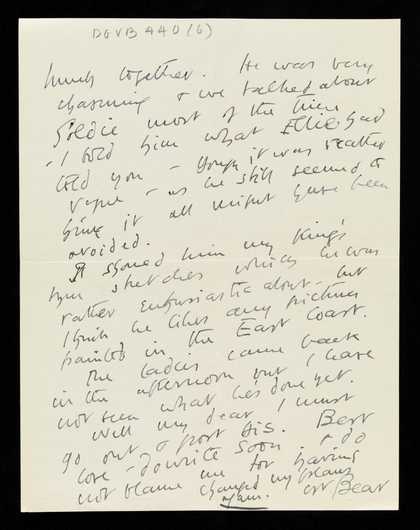 DGVB 440 (6)
lunch together. He was very
charming & we talked about
Goldie most of the time
- I told him what Ellie had
told you - though it was rather
vague - as he still seemed to
think it all might have been
avoided.
I showed him my King's
Lynn sketches which he was
rather enthusiastic about - but
I think he likes any picture
painted in the East Coast.
The ladies came back
in the afternoon but I have
not seen what he's done yet.
Well my dear I must
go out & post this. Best
love - do write soon & do
not blame me for having
changed my plans
again. Bear